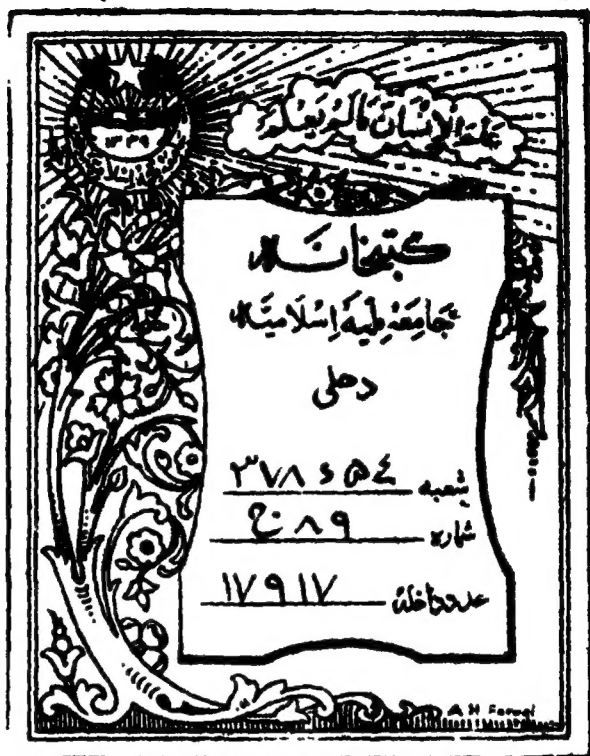 علم الانسان مالم يعلم
۱۳۳۹
کتبخانہ
جامعہ ملیہ اسلامیہ
دهلی
شعبہ ۳۷۸ء۵۴
شمارہ ۸۹ ج
عدد داخلہ ۱۷۹۱۷
A H Faruqi